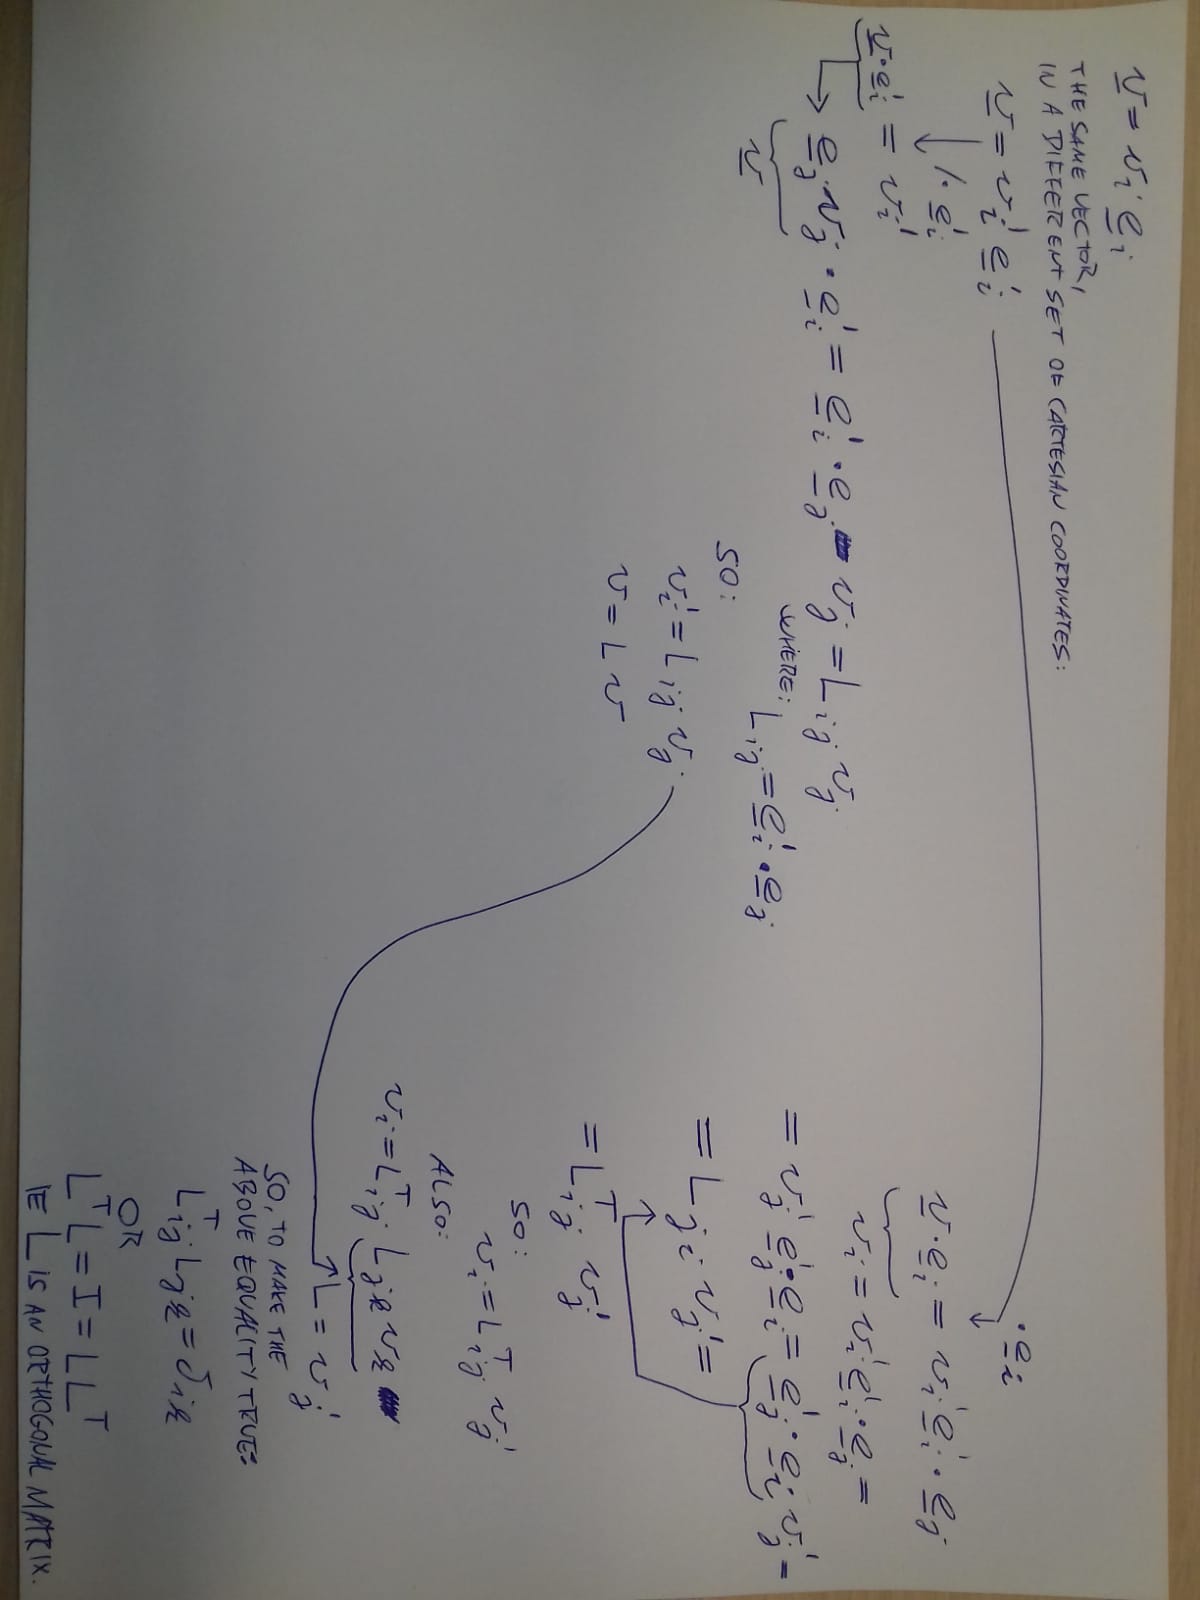 v = vᵢ eᵢ
THE SAME VECTOR,
IN A DIFFERENT SET OF CARTESIAN COORDINATES:
v = vᵢ' eᵢ'
/· eᵢ'
v·eᵢ' = vᵢ'
eⱼ vⱼ · eᵢ' = eᵢ' · eⱼ vⱼ = Lᵢⱼ vⱼ
v
WHERE:
Lᵢⱼ = eᵢ' · eⱼ
SO:
vᵢ' = Lᵢⱼ vⱼ
v = L v
· eᵢ
v · eᵢ = vᵢ' eᵢ' · eⱼ
vᵢ = vᵢ' eᵢ' · eⱼ =
= vⱼ' eⱼ' · eᵢ = eⱼ' · eᵢ vⱼ' =
= Lⱼᵢ vⱼ' =
= Lᵀᵢⱼ vⱼ'
SO:
vᵢ = Lᵀᵢⱼ vⱼ'
ALSO:
vᵢ = Lᵀᵢⱼ Lⱼₖ vₖ
L = vⱼ'
SO, TO MAKE THE
ABOVE EQUALITY TRUE:
Lᵀᵢⱼ Lⱼₖ = δᵢₖ
OR
LᵀL = I = LLᵀ
IE L IS AN ORTHOGONAL MATRIX.